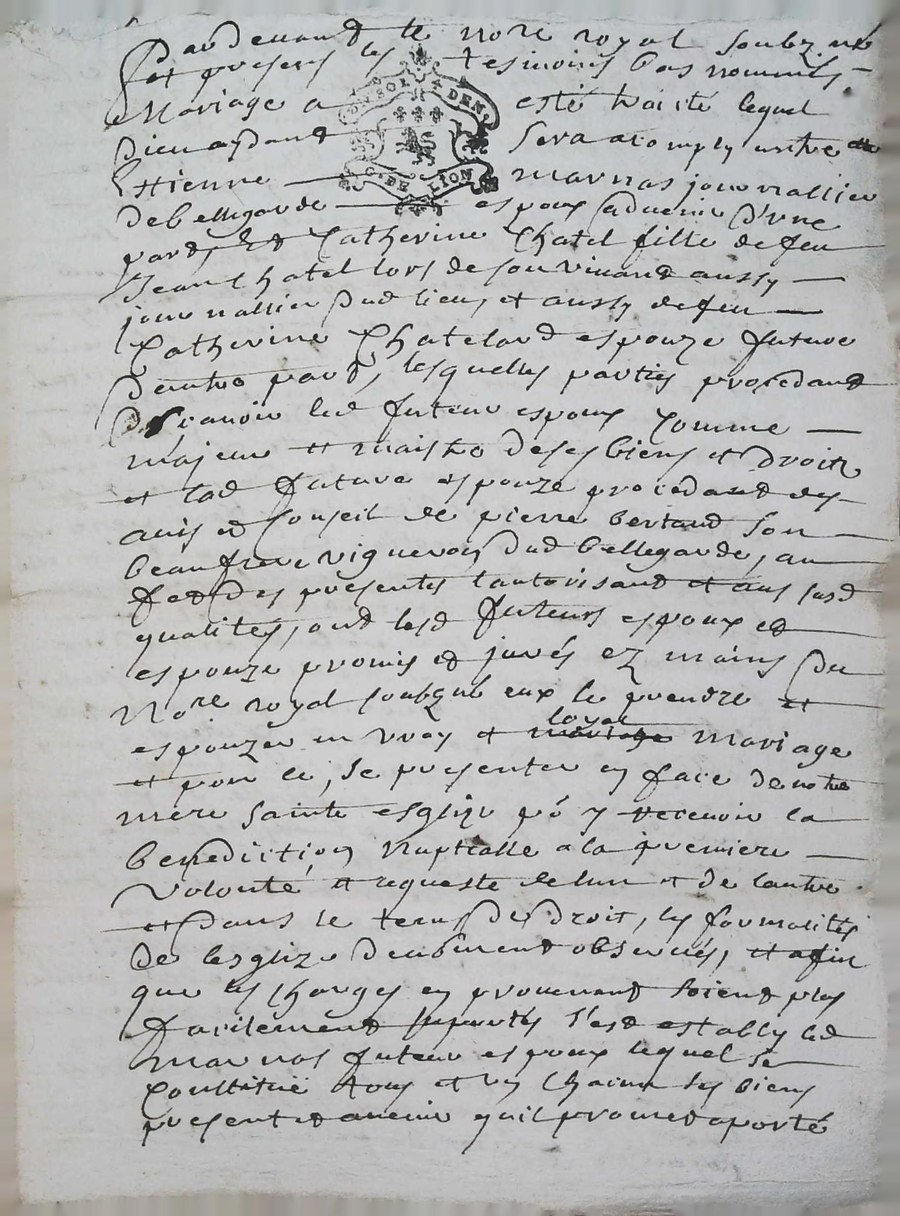 Pardevant le no.re royal soubz.né
fut presens les tesmoins bas nommés
Mariage a esté traité lequel
UN SOL 4 DEN.
G. DE LION
Dieu aydant sera acomply entre
Estienne Marnas journallier
de bellegarde espoux aduenir d'vne
part, Et Catherine Chatel fille de feu
Jean Chatel lors de son viuant aussy
journallier dud lieu, et aussy de feu
Catherine Chatelard espouze future
dautre part, lesquelles parties procedant
Sçauoir led futeur espoux comme
majeur et maistre de ses biens et droits
et lad future espouze procedant des
auis et Conseil de pierre bertaud son
beaufrere vigneron dud bellegarde, au
fet des presentes lautorisant et aus susd
qualités, ont lesd futeurs espoux et
espouze promis et jurés ez mains du
No.re royal soubzné eux le prendre et
espouzer en vray et loyal mariage
et pour ce, se presenter en face de notre
mere sainte esglize po.r y recenoir la
benediction Nuptialle a la premiere
volonté et requeste de lun et de lautre
et dans le tems de droit, les formalités
de lesglize deuëment obseruées, et afin
que les charges en prouenant soient plus
facilement suportés s'est estably led
Marnas futeur espoux lequel se
constitue tous et vn chacun ses biens
present et auenir quil promet aporté